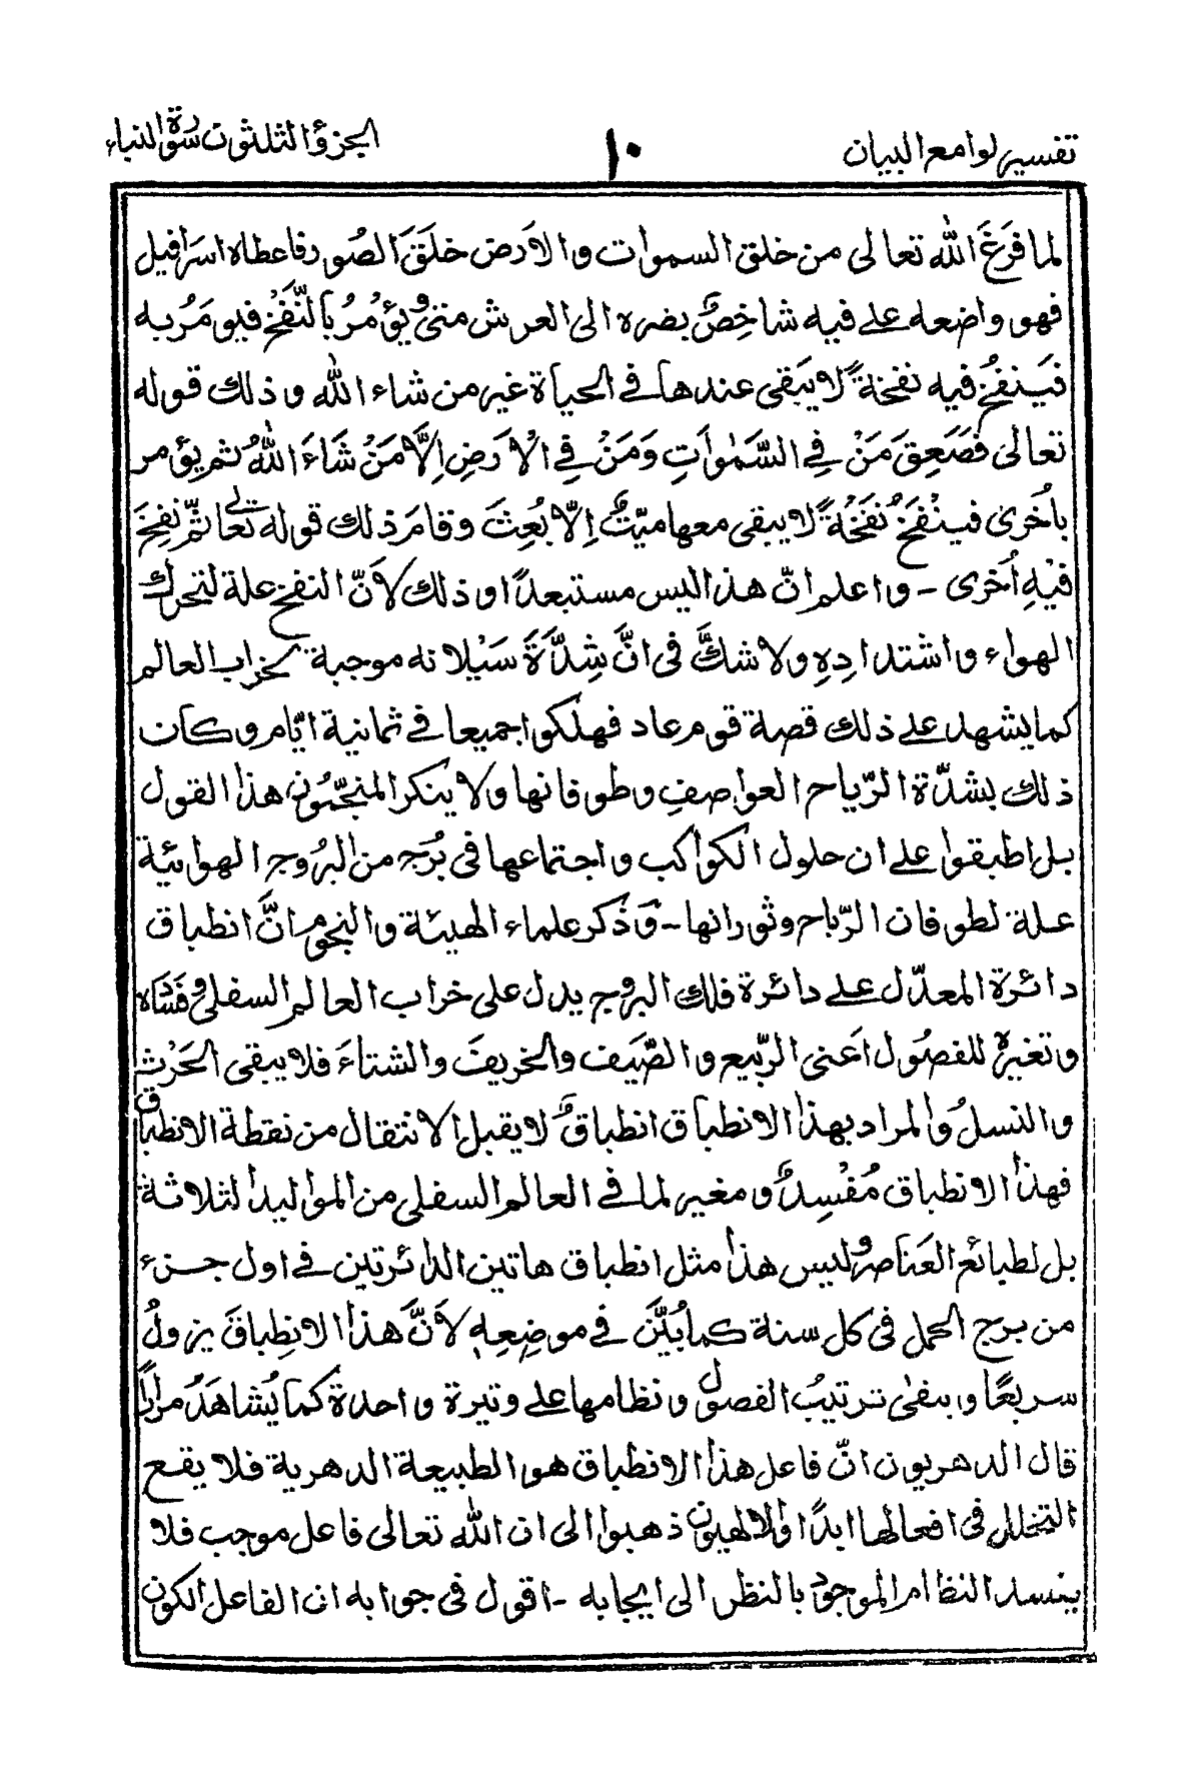 تفسير لوامع البيان ١٠ الجزؤ الثلثون سورة النباء
لما فَرَغَ الله تعالى من خلق السموات والارض خلَقَ الصُور فاعطاه اسرافيل
فهو واضعه على فيه شاخِصٌ بصره الى العرش متى يُؤمُر بالنَّفخ فيومَرُ به
فيَنفُخُ فيه نفخةً لا يَبَقى عندها فى الحياة غير من شاء الله وذلك قوله
تعالى فصَعِقَ مَنْ فِي السَّمٰوَاتِ وَمَنْ فِي الْاَرضِ اِلَّا مَنْ شَاءَ اللهُ ثم يؤمر
باُخرى فينْفَخُ نُفخَةً لا يبقى معها ميّتٌ اِلّا بُعِثَ وقامَ وذلك قوله تعالى ثمّ نُفِخَ
فيْهِ اُخرى - واعلم انّ هذا ليس مستبعداً وذلك لاَنّ النفخ علة لتحرك
الهواء واشتدادِهِ ولا شكَّ فى انَّ شِدَّةَ سَيْلانه موجبة لخراب العالم
كما يشهد على ذلك قصة قوم عاد فهلكوا جميعا فى ثمانية ايّام وكان
ذلك بشدّة الرّياح العواصفِ وطوفانها ولا ينكر المنجّمون هذا القول
بل اطبقوا على ان حلول الكواكب واجتماعها فى بُرجه من البرُوج الهوائية
علة لطوفان الرّباح وثورانها - وَذكر علماء الهيئة والنجوم انَّ انطباق
دائرة المعدّل على دائرة فلك البروج يدل على خراب العالم السفلى وفَسَاده
وتغيرة للفصُول اَعنى الرّبيع والصَّيَف والخريفَ والشتاءَ فلا يبقى الحَرْث
والنسلُ والمراد بهذا الانطباق انطباقٌ لا يقبل الانتقال من نقطة الانطباق
فهذا الانطباق مُفْسِدٌ ومغير لما فى العالم السفلى من المواليد الثلاثة
بل لطبائع العَناصر وليس هذا مثل انطباق هاتين الدائرتين فى اول جزء
من برج الحمل فى كل سنة كما بُيِّنَ فى موضِعِهٖ لاَنَّ هذا الانِطباقَ يزولُ
سريعًا ويبقىٰ ترتيبُ الفصول ونظامها على وتيرة واحدة كما يُشاهَدُ مراراً
قال الدهريون انّ فاعل هذا الانطباق هو الطبيعة الدهرية فلا يقع
التخلل فى افعالها ابدًا والالهيون ذهبوا الى ان الله تعالى فاعل موجب فلا
ينسد النظام الموجود بالنظر الى ايجابه - اقول فى جوابه ان الفاعل الكون